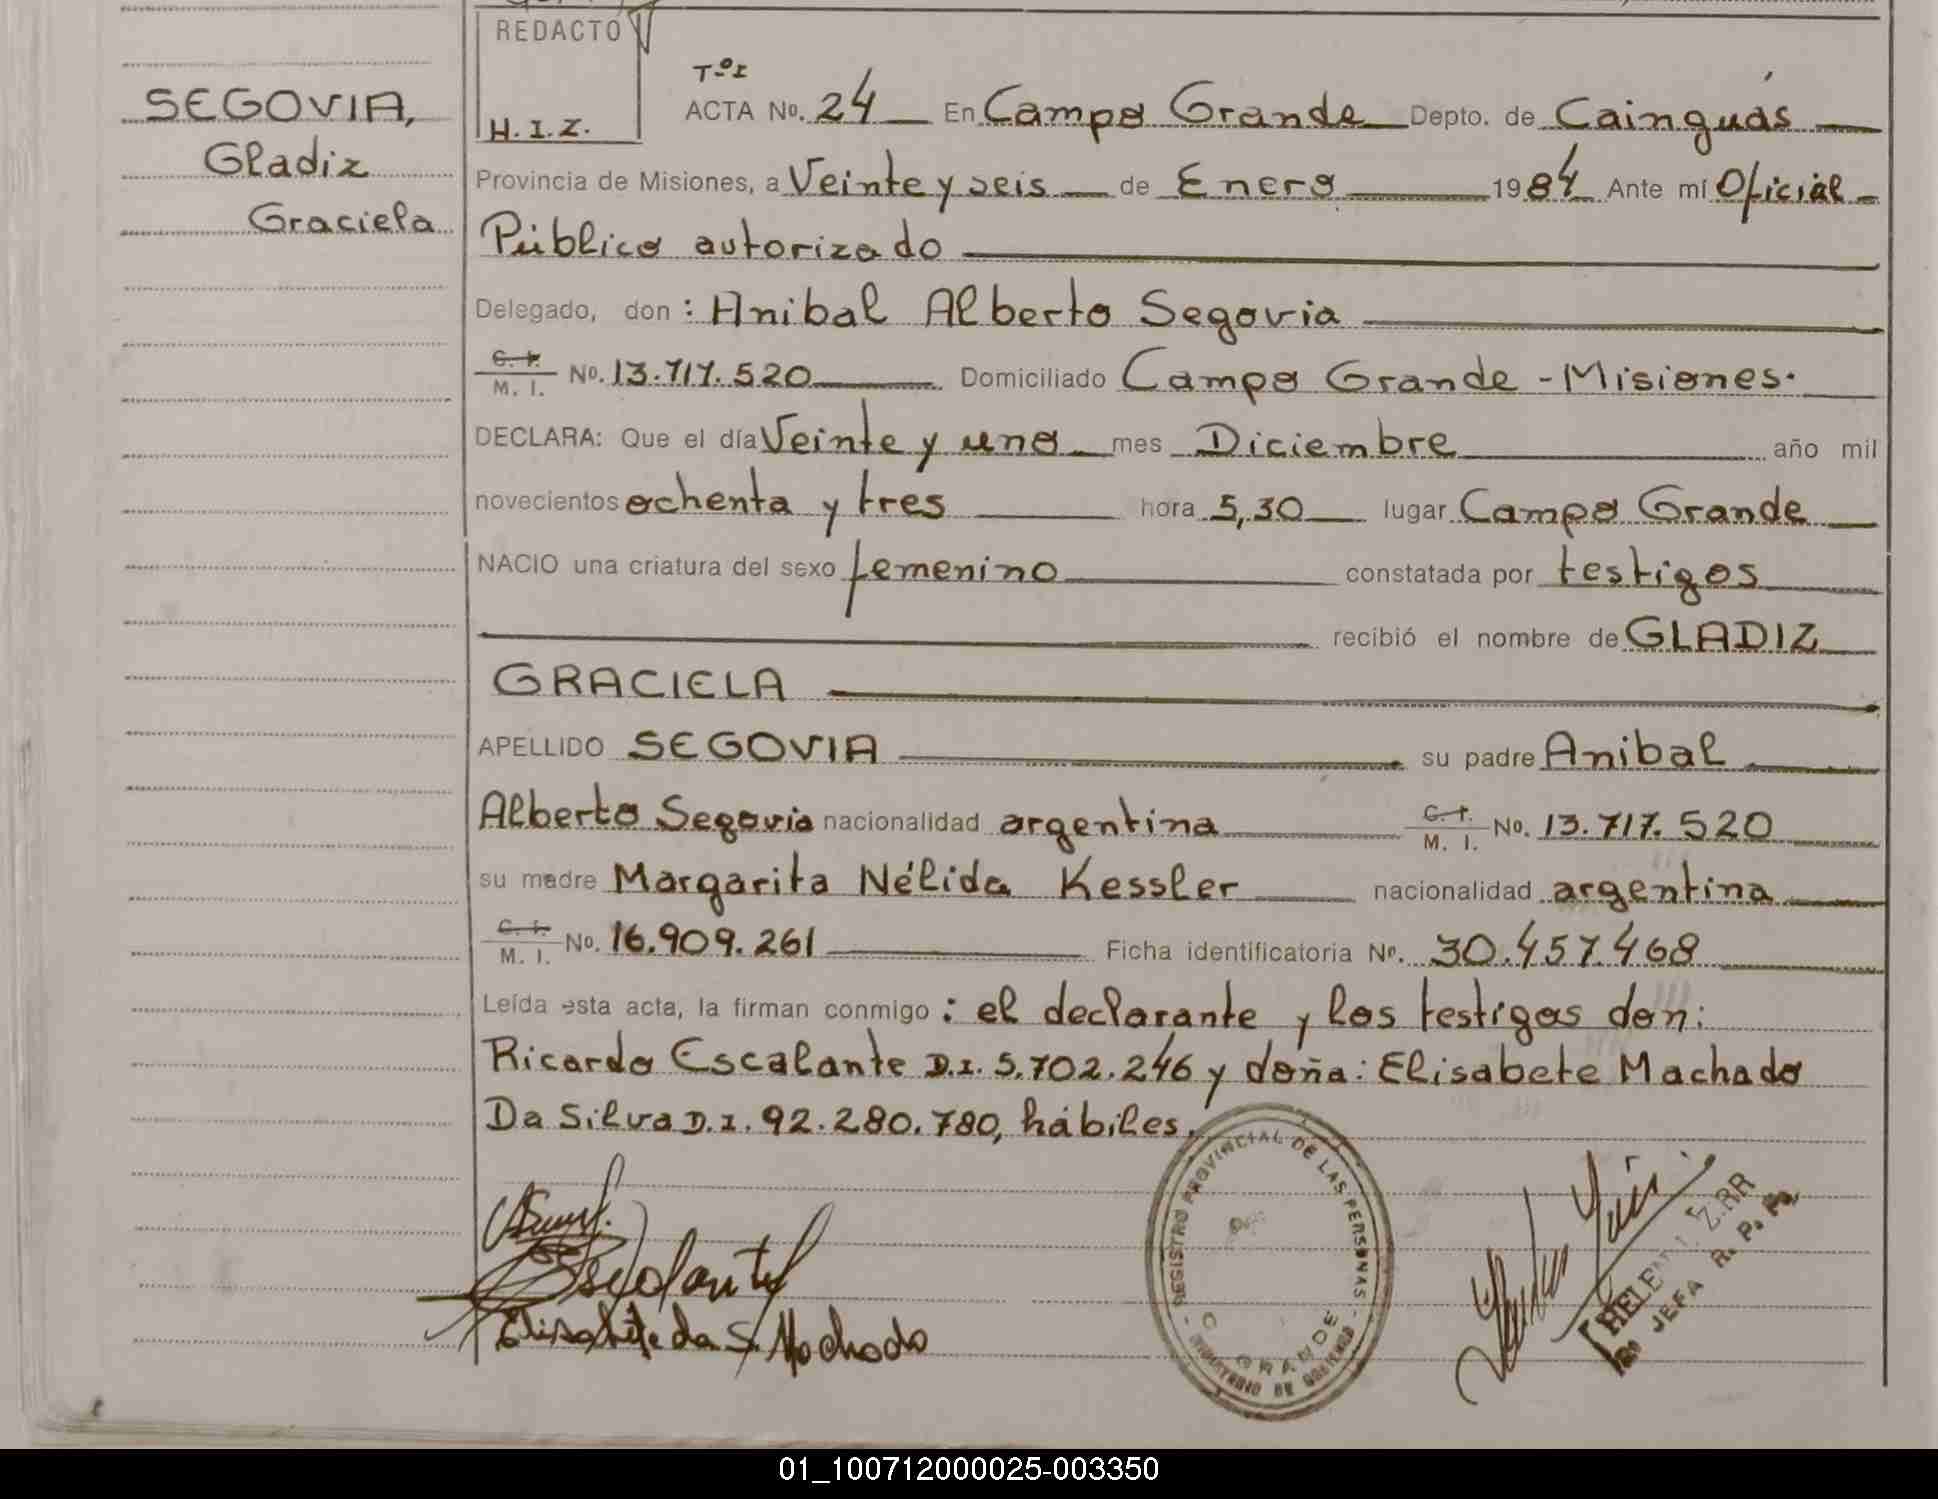 REDACTO
H. I. Z.
SEGOVIA,
Gladiz
Graciela
Tº I
ACTA Nº. 24 En Campo Grande Depto. de Cainguás
Provincia de Misiones, a Veinte y seis de Enero 1984 Ante mí Oficial
Público autorizado
Delegado, don : Anibal Alberto Segovia
C. I. / M. I. Nº. 13.717.520 Domiciliado Campo Grande - Misiones.
DECLARA: Que el día Veinte y uno mes Diciembre año mil
novecientos ochenta y tres hora 5,30 lugar Campo Grande
NACIO una criatura del sexo femenino constatada por testigos
recibió el nombre de GLADIZ
GRACIELA
APELLIDO SEGOVIA su padre Anibal
Alberto Segovia nacionalidad argentina C. I. / M. I. Nº. 13.717.520
su madre Margarita Nélida Kessler nacionalidad argentina
C. I. / M. I. Nº. 16.909.261 Ficha identificatoria Nº. 30.457.468
Leída esta acta, la firman conmigo : el declarante y los testigos don:
Ricardo Escalante D.I. 5.702.246 y doña: Elisabete Machado
Da Silva D.I. 92.280.780, hábiles.
Escalante
Elisabete da S. Machado
REGISTRO PROVINCIAL DE LAS PERSONAS
C. GRANDE
MINISTERIO DE GOBIERNO
HELEN I. Z
JEFA R. P. P.
01_100712000025-003350